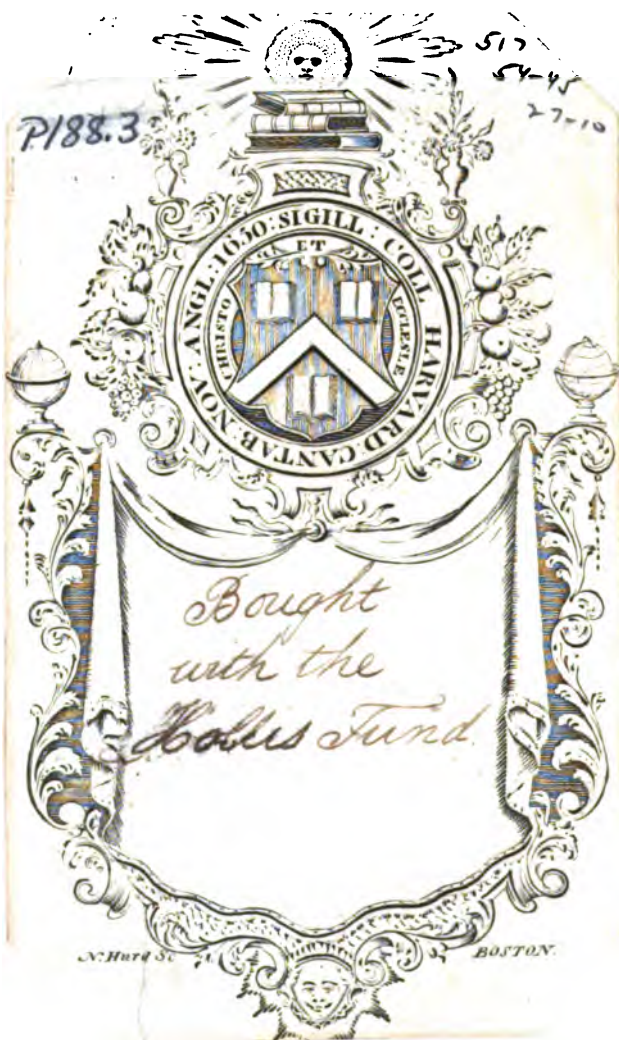 517
54-45
27-10
P188.3
SIGILL : COLL HARVARD CANTAB: NOV: ANGL: 1650:
ET
CHRISTO
ECCLESIÆ
Bought
with the
Hollis Fund
N. Hurd Sc
BOSTON.